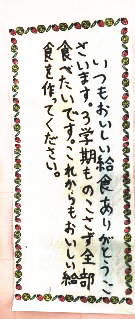 いつもおいしい給食ありがとうご
ざいます。3学期ものこさず全部
食べたいです。これからもおいしい給
食を作ってください。